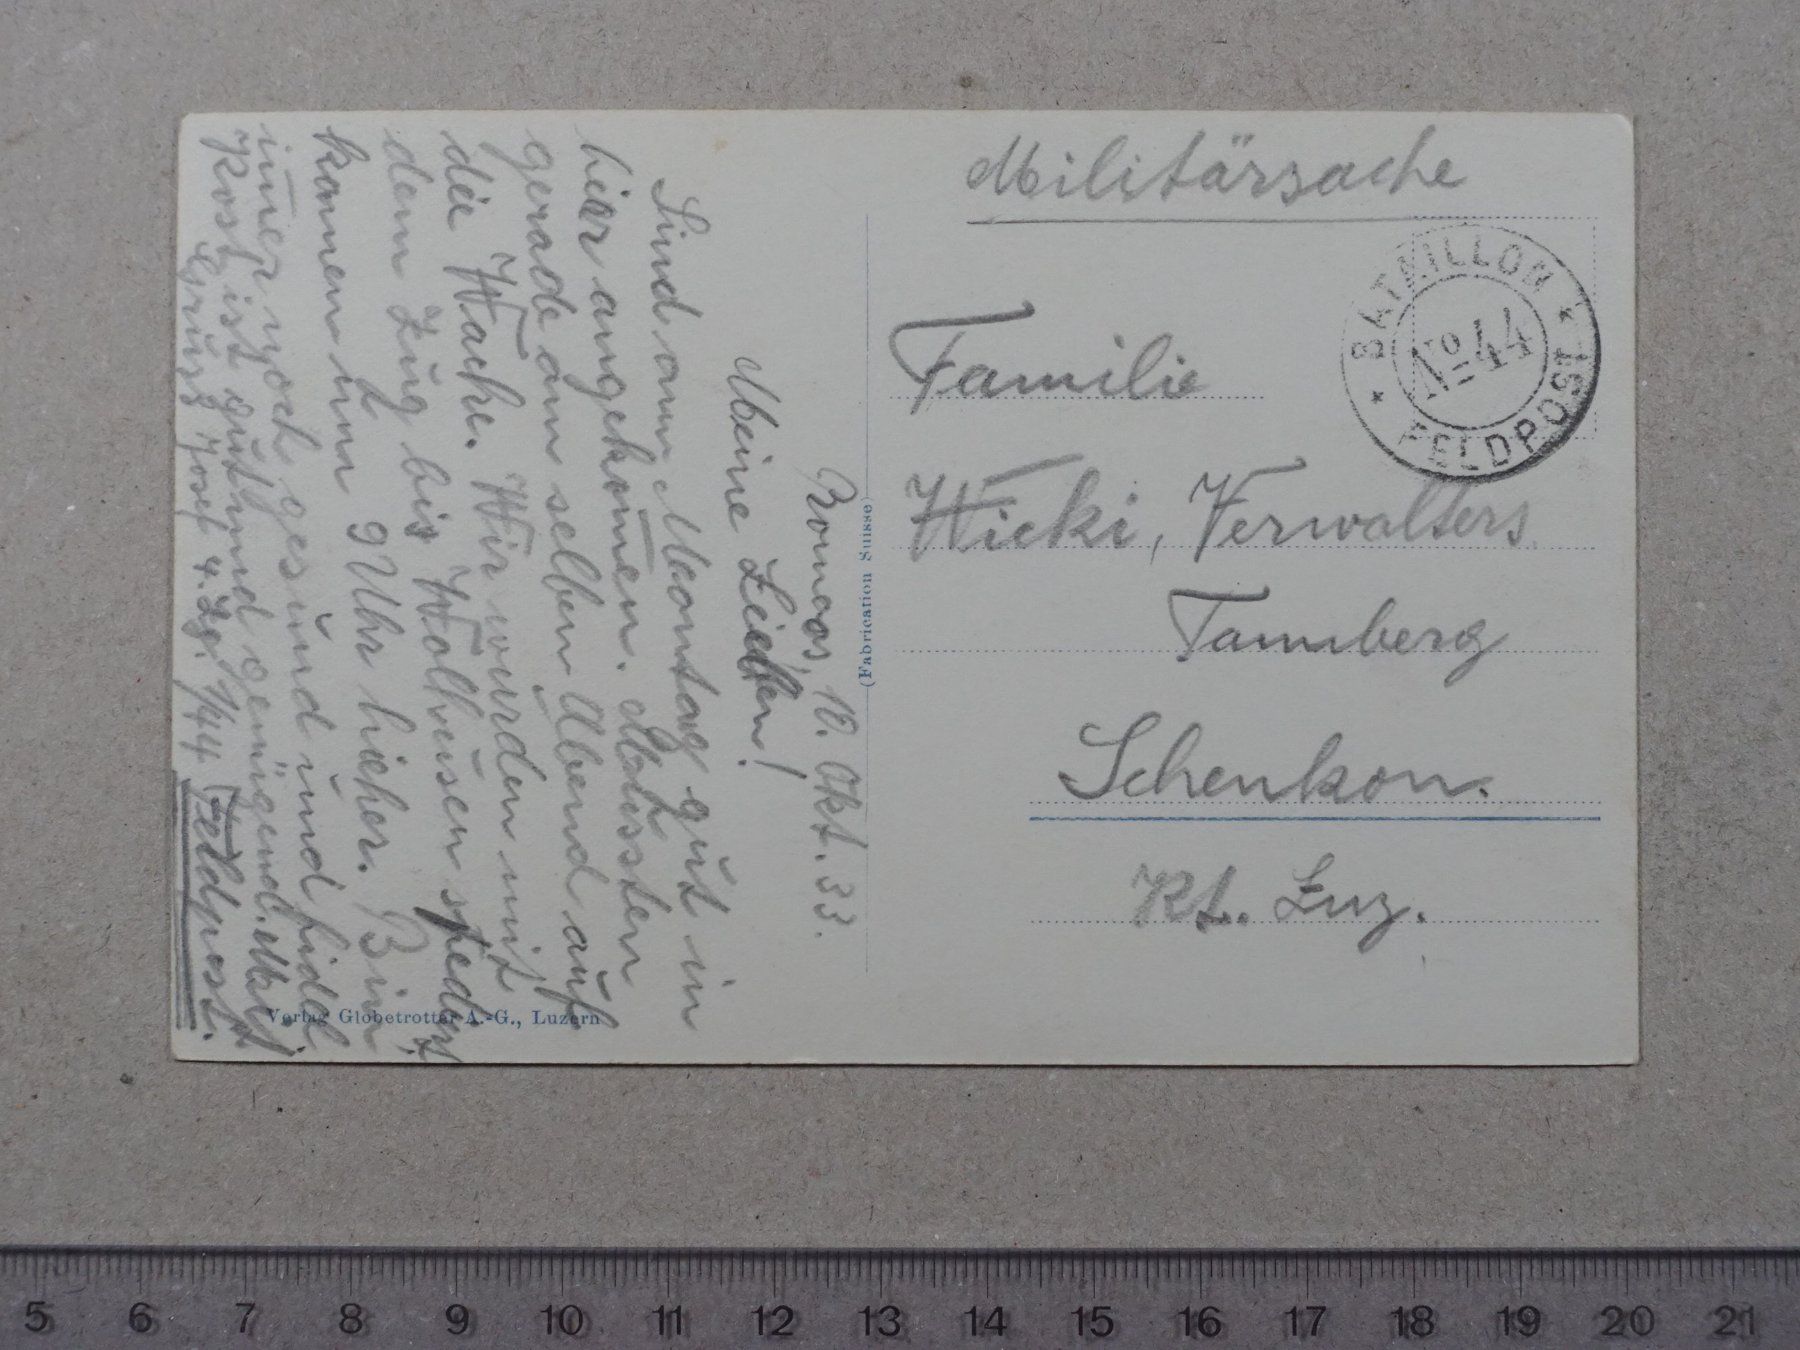 Militärsache
BATAILLON
No 44
FELDPOST
Familie
Wicki, Verwalters
Tannberg
Schenkon.
Kt. Luz.
(Fabrication Suisse)
Romoos, 10. Okt. 33.
Meine Lieben!
Sind am Montag gut in
hier angekom̄en. Mussten
gerade am selben Abend auf
die Wache. Wir wurden mit
dem Zug bis Wolhusen spediert,
kamen um 9 Uhr hieher. Bin
im̄er noch gesund und fidel
Kost ist gut und genügend.
Gruss Josef 4. Zg. I/44 (Feldpost.
Verlag Globetrotter A.-G., Luzern
5 6 7 8 9 10 11 12 13 14 15 16 17 18 19 20 21